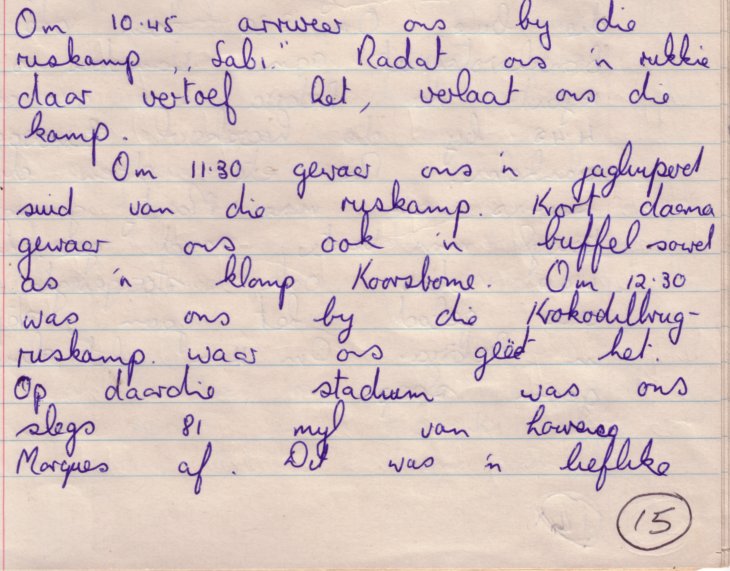 Om 10.45 arriveer ons by die
ruskamp „Sabi." Nadat ons 'n rukkie
daar vertoef het, verlaat ons die
kamp.
Om 11.30 gewaar ons 'n jagluiperd
suid van die ruskamp. Kort daarna
gewaar ons ook 'n buffel sowel
as 'n klomp Koorsbome. Om 12.30
was ons by die Krokodilbrug-
ruskamp. waar ons geëet het.
Op daardie stadium was ons
slegs 81 myl van
Marques af. Dit was 'n lieflike
15